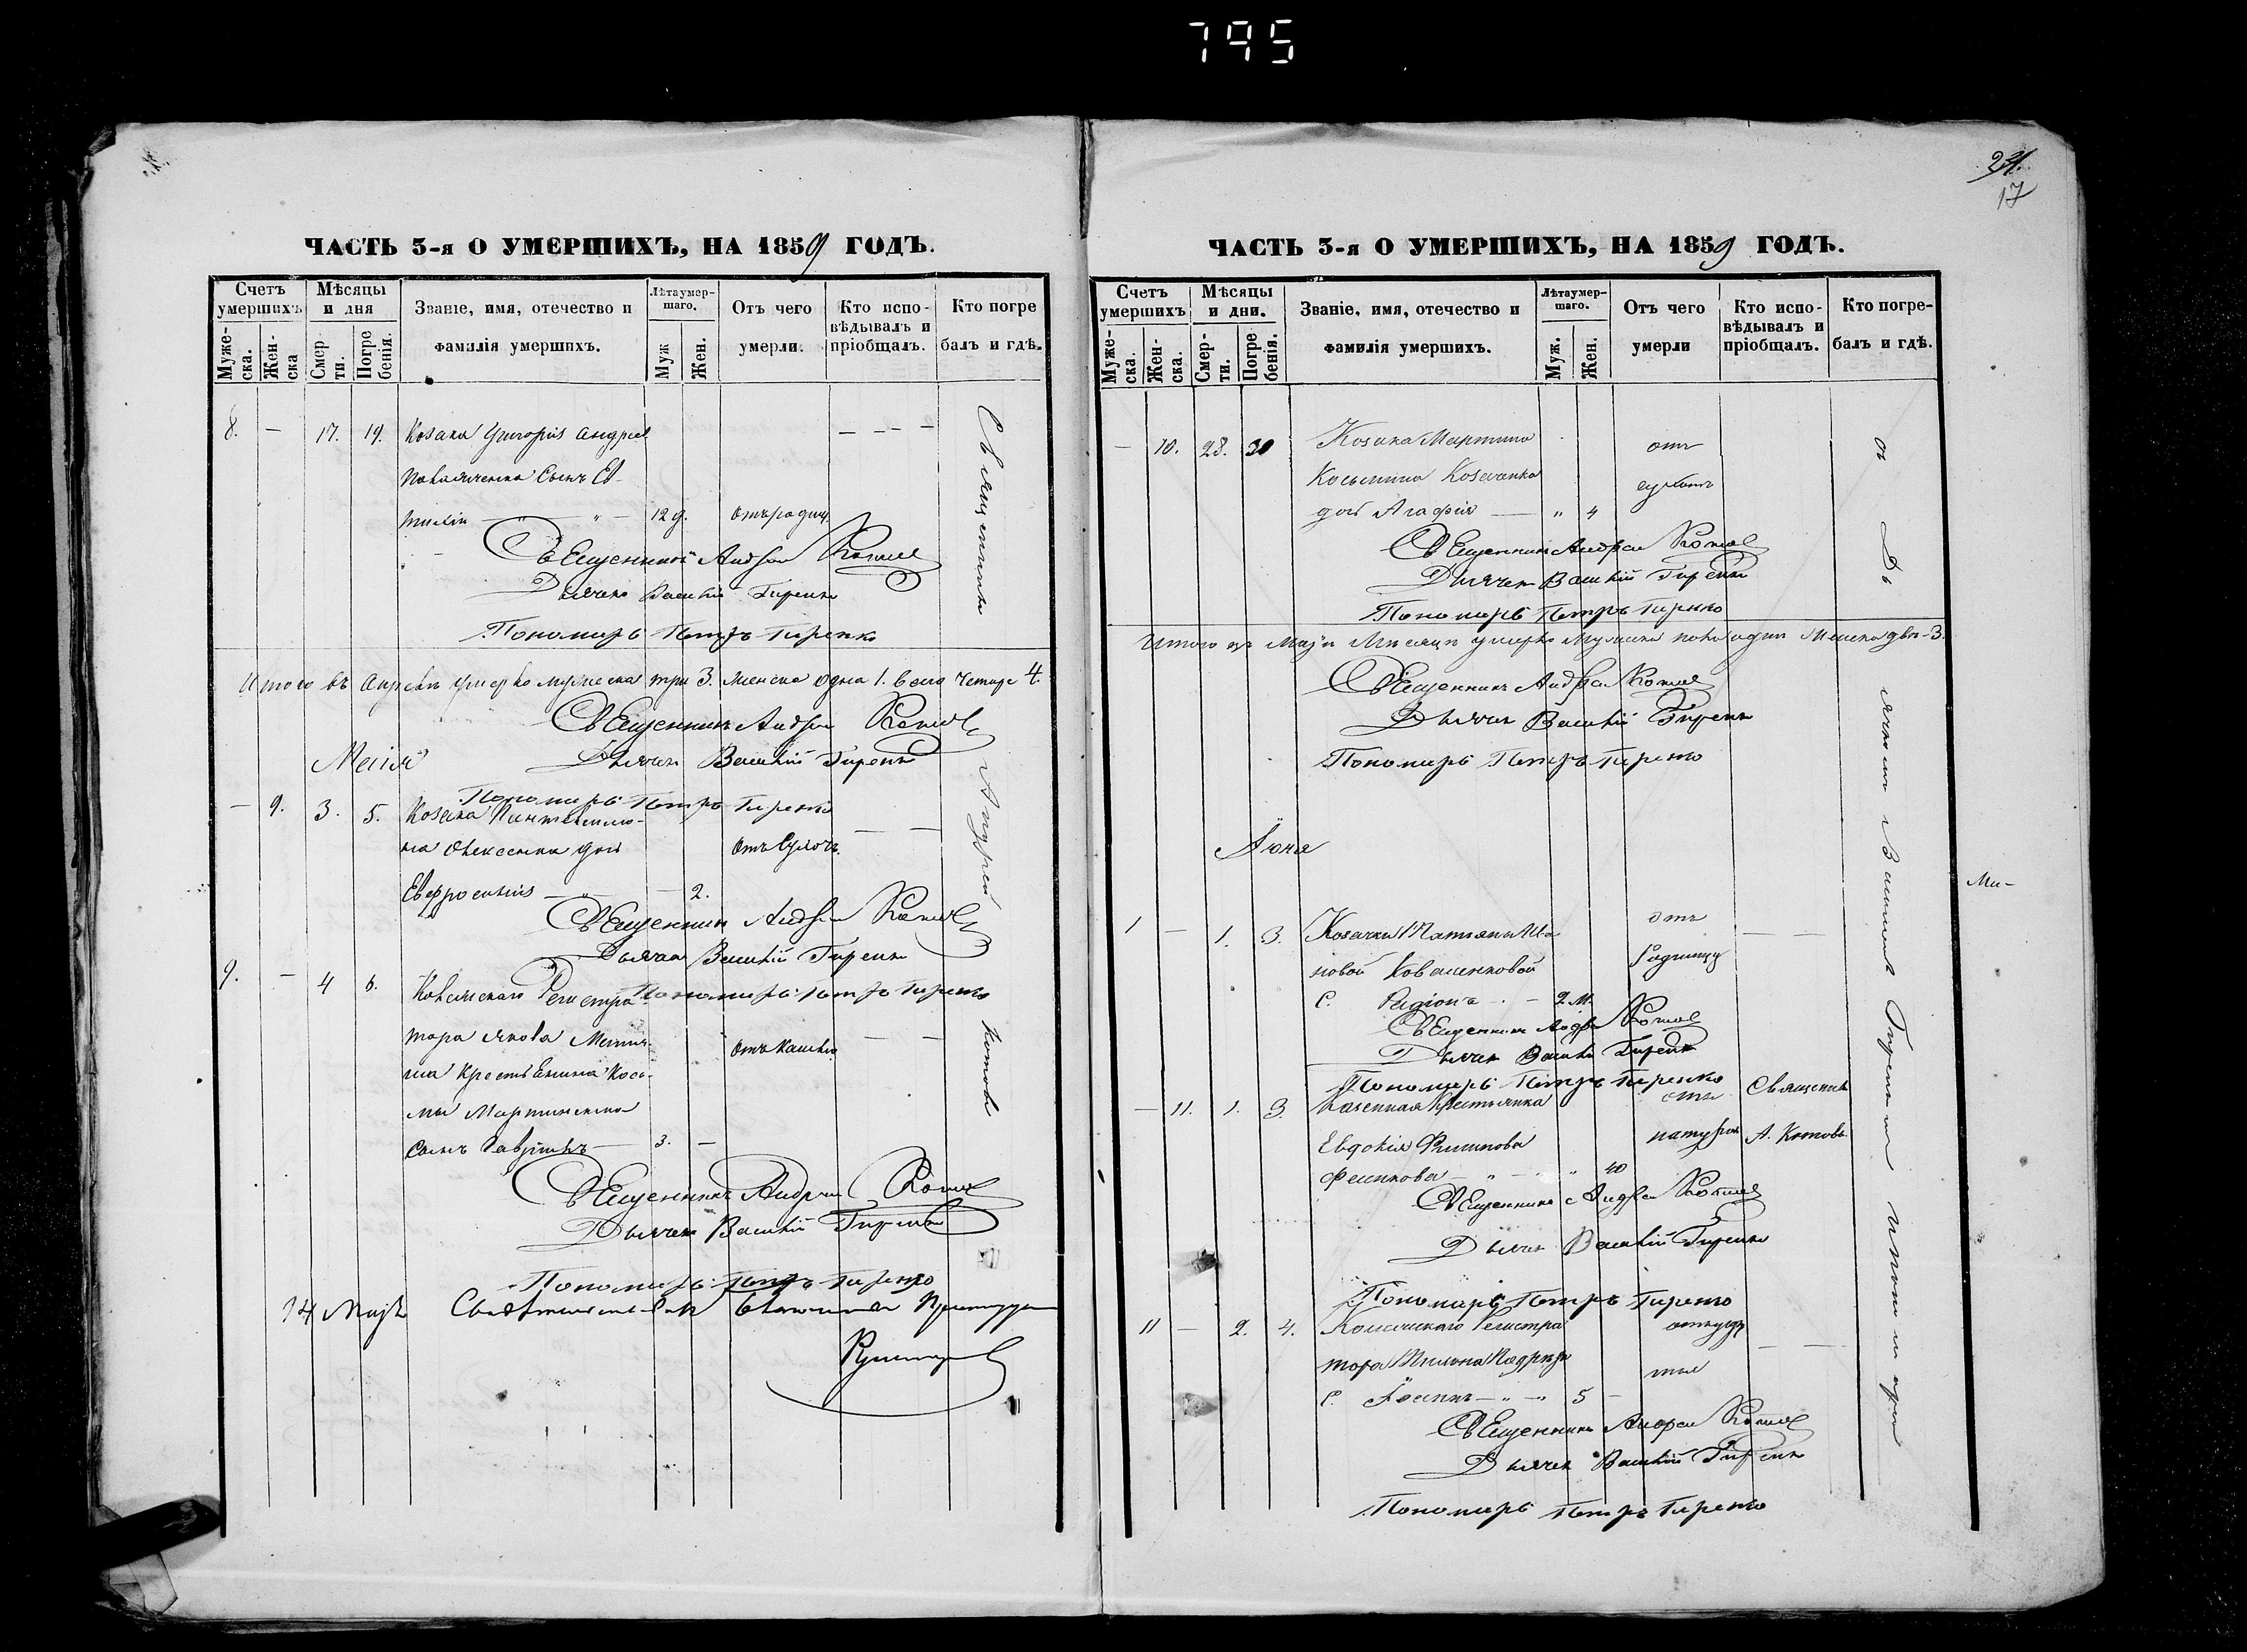 795
ЧАСТЬ 3-я О УМЕРШИХЪ, НА 1859 ГОДЪ.
Счетъ умершихъ
Мѣсяцы и дня
Званіе, имя, отечество и фамилія умершихъ.
Лѣта умер-шаго.
Отъ чего умерли.
Кто испо-вѣдывалъ и пріобщалъ.
Кто погре балъ и гдѣ.
Муже-ска.
Жен-ска
Смер ти.
Погре бенія.
Муж
Жен.
8. — 17. 19. Козака Григорія Андрее
Сынъ Ев-
тихій — 12 д. отъ родим.
Священникъ Андрей Котовъ
Дьячекъ Василій Гиренко
Пономарь Петръ Гиренко
Итого въ Апрелѣ умерло мужеска три 3. женска одна 1. всего четыре 4.
Священникъ Андрей Котовъ
Маія
Дьячекъ Василій Гиренко
Пономарь Петръ Гиренко
— 9. 3. 5. Козака Пантелеимо-
на дочь
Евфросинія — 2.
Священникъ Андрей Котовъ
Дьячекъ Василій Гиренко
9. — 4 6. Колежскаго Регистра-
Пономарь Петръ Гиренко
тора Якова отъ кашлю
на Крестьянина Кось-
мы Мартиненка
сынъ Гавріилъ — 3. —
Священникъ Андрей Котовъ
Дьячекъ Василій Гиренко
Пономарь Петръ Гиренко
14 Маія
Священникъ Андрей Котовъ
231.
17
ЧАСТЬ 3-я О УМЕРШИХЪ, НА 1859 ГОДЪ.
Счетъ умершихъ
Мѣсяцы и дни.
Званіе, имя, отечество и фамилія умершихъ.
Лѣта умер-шаго.
Отъ чего умерли
Кто испо-вѣдывалъ и пріобщалъ.
Кто погре-балъ и гдѣ.
Муже-ска.
Жен-ска.
Смер-ти.
Погре бенія.
Муж.
Жен.
— 10. 28. 30 Козака Мартина отъ
Косьмина Козаченка
дочь Агафія — " 4
Священникъ Андрей Котовъ
Дьячекъ Василій Гиренко
Пономарь Петръ Гиренко
Итого въ Маіи Мѣсяцѣ умерло Мужеска пола одинъ Женска двѣ — 3.
Священникъ Андрей Котовъ
Дьячекъ Василій Гиренко
Пономарь Петръ Гиренко
Іюня
1 — 1. 3. Козачки Татіяны Ива отъ
новой Коваленковой родимцу
С. Родіонъ — 2 м.
Священникъ Андрей Котовъ
Дьячекъ Василій Гиренко
Пономарь Петръ Гиренко
— 11. 1. 3. Казенная Крестьянка отъ Священникъ
Евдокія Филипова натуры А. Котовъ
— " 40
Священникъ Андрей Котовъ
Дьячекъ Василій Гиренко
Пономарь Петръ Гиренко
11 — 2. 4. Колежскаго Регистра
тора
С. — " — 5 —
Священникъ Андрей Котовъ
Дьячекъ Василій Гиренко
Пономарь Петръ Гиренко
съ Дь ячкомъ Василіемъ Гиренкомъ
Ми-